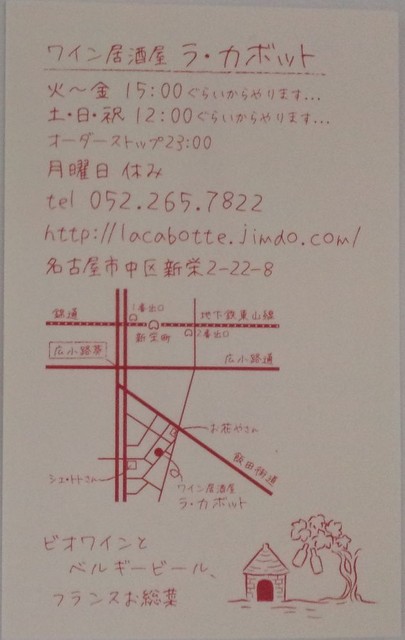 ワイン居酒屋 ラ・カボット
火〜金 15:00ぐらいからやります...
土・日・祝 12:00ぐらいからやります...
オーダーストップ23:00
月曜日 休み
tel 052.265.7822
http://lacabotte.jimdo.com/
名古屋市中区新栄2-22-8
錦通
1番出口
地下鉄東山線
新栄町
2番出口
広小路葵
広小路通
お花やさん
飯田街道
シェ・トトさん
ワイン居酒屋
ラ・カボット
ビオワインと
ベルギービール、
フランスお総菜